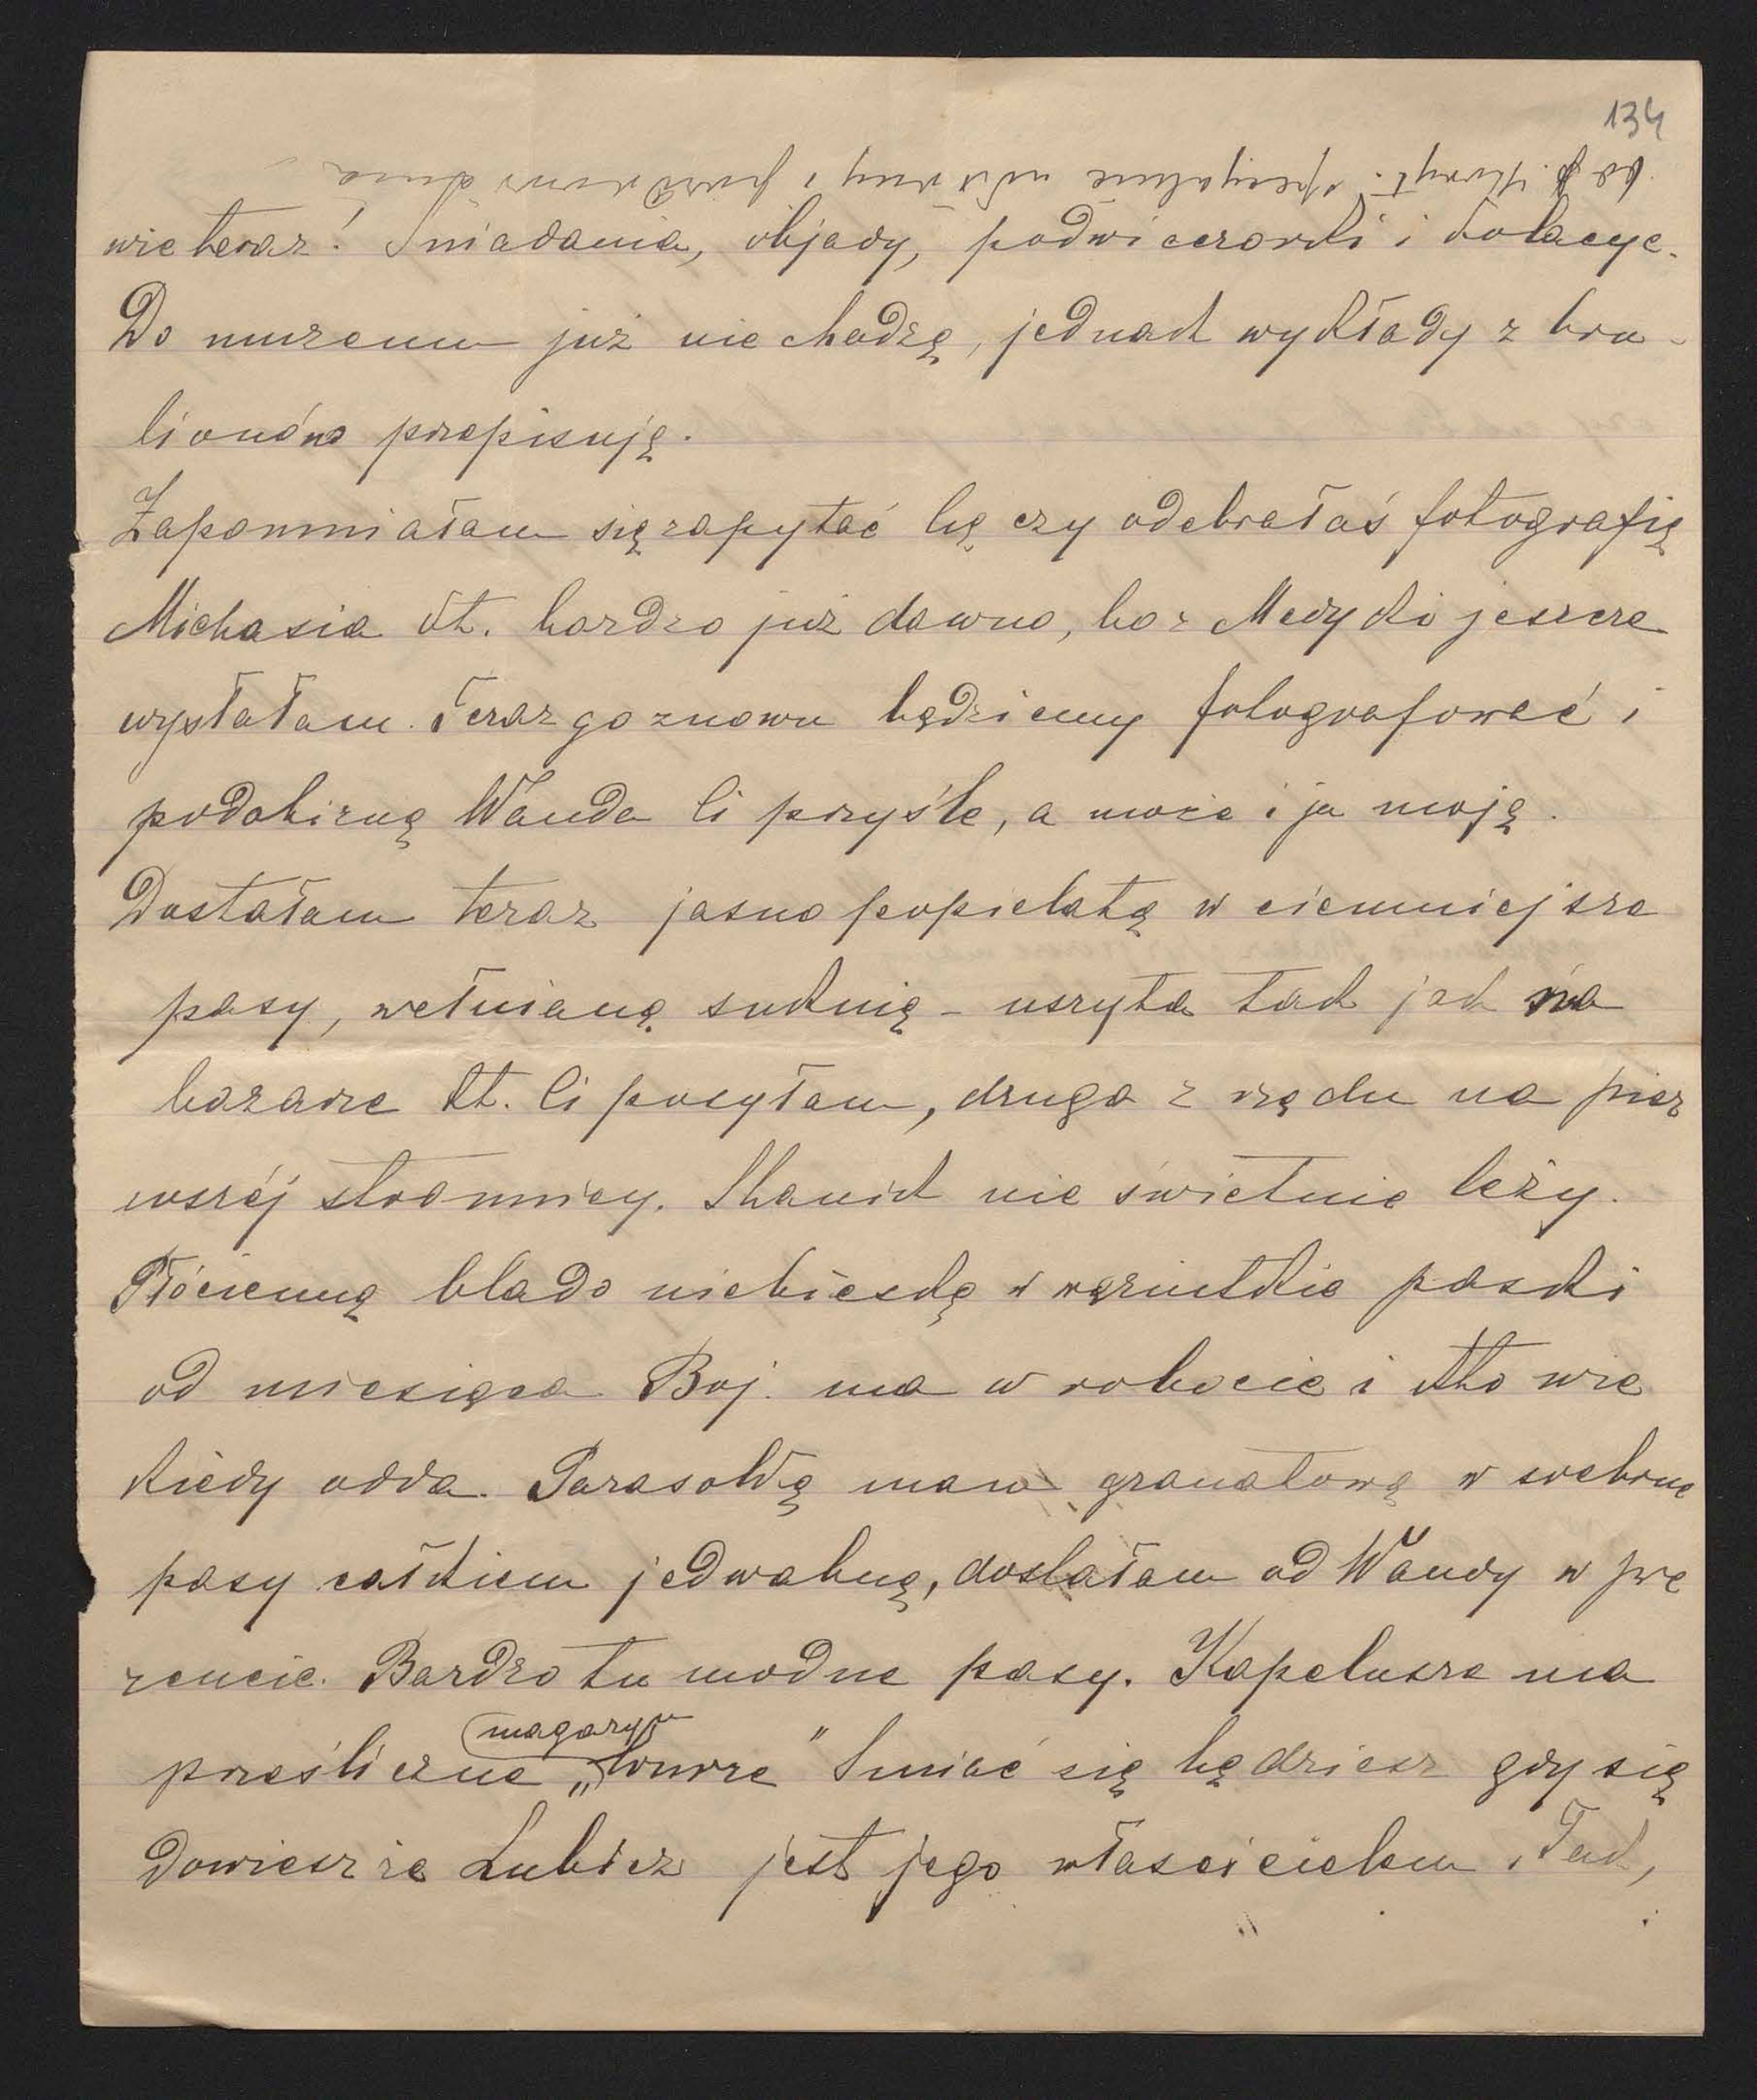 134
od p. Kuryt. specyalnie ukłony i pozdrowienia
wie teraz! Śniadania, objady, podwieczorki i kolacye.
Do muzeum już nie chodzę, jednak wykłady z bru-
lionów przepisuję.
Zapomniałam się zapytać Cię czy odebrałaś fotografię
Michasia kt. bardzo już dawno, bo z Medyki jeszcze
wysłałam. Teraz go znowu będziemy fotografować i
podobiznę Wanda Ci przyśle, a może i ja moją.
Dostałam teraz jasno popielatą w ciemniejsze
pasy, wełnianą suknię – uszyta tak jak na
bazarze kt. Ci posyłam, druga z rzędu na pier
wszéj stronnicy. Stanik nie świetnie leży.
Płócienną blado niebieską w węziutkie paski
od miesiąca Boj. ma w robocie i kto wie
kiedy odda. Parasolkę mam granatową w srebrne
pasy całkiem jedwabną, dostałam od Wandy w pre
zencie. Bardzo tu modne pasy. Kapelusze ma
magazyn
prześliczne „ Louvre" Śmiać się będziesz gdy się
dowiesz że Lubicz jest jego właścicielem. Tak,